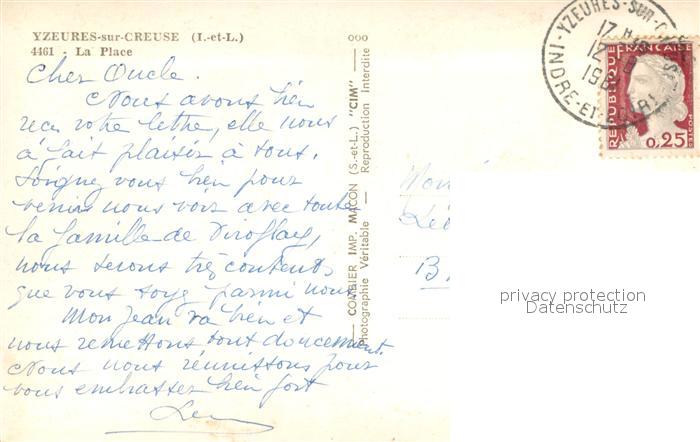 YZEURES-sur-CREUSE (I.-et-L.)
4461 - La Place
Cher Oncle.
Nous avons bien
recu votre lettre, elle nous
à fait plaisir à tous.
Soignez vous bien pour
venir nous voir avec toute
la famille de Viroflay,
nous serons très contents
que vous soyez parmi nous
Mon Jean va bien et
nous remettons tout doucement.
Nous nous réunissons pour
vous embrasser bien fort
COMBIER IMP. MACON (S.-et-L.) "CIM"
Photographie Véritable - Reproduction Interdite
YZEURES-SUR-
INDRE-ET-
17 H
12
REPUBLIQUE FRANÇAISE
POSTES
0,25
B.
privacy protection
Datenschutz